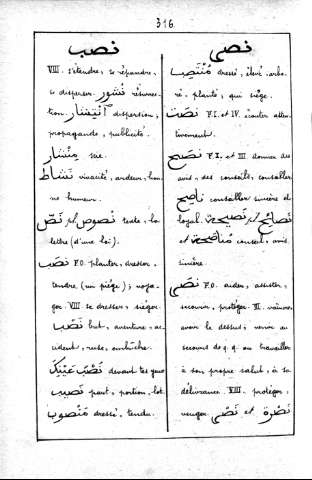 316
نصب
VIII. s'étendre, se répandre,
se disperser. نشور résurrec-
tion. انتشار dispersion,
propagande, publicité.
منشار scie.
نشاط vivacité, ardeur, bon-
ne humeur.
نصّ pl نصوص texte, la
lettre (d'une loi).
نصب F.O. planter, dresser,
tendre (un piège);
VIII se dresser, siéger.
نصب but,
ruse, embûche.
نصب عينيك devant tes yeux
نصيب part, portion, lot.
منصوب dressé, tendu.
نصى
منتصب dressé, élevé, arbo-
ré, planté, qui siège.
نصت F.I. et IV. écouter atten-
tivement.
نصح F.I. et III donner des
avis, des conseils, conseiller
ناصح conseiller sincère et
loyal. نصيحة pl نصائح
et مناصحة conseil, avis
sincère.
F.O. aider, assister,
secourir, protéger. VI. vaincre,
avoir le dessus; venir au
secours de q.q. ou travailler
à son propre salut, à sa
délivrance. VIII. protéger,
venger. نصرة et